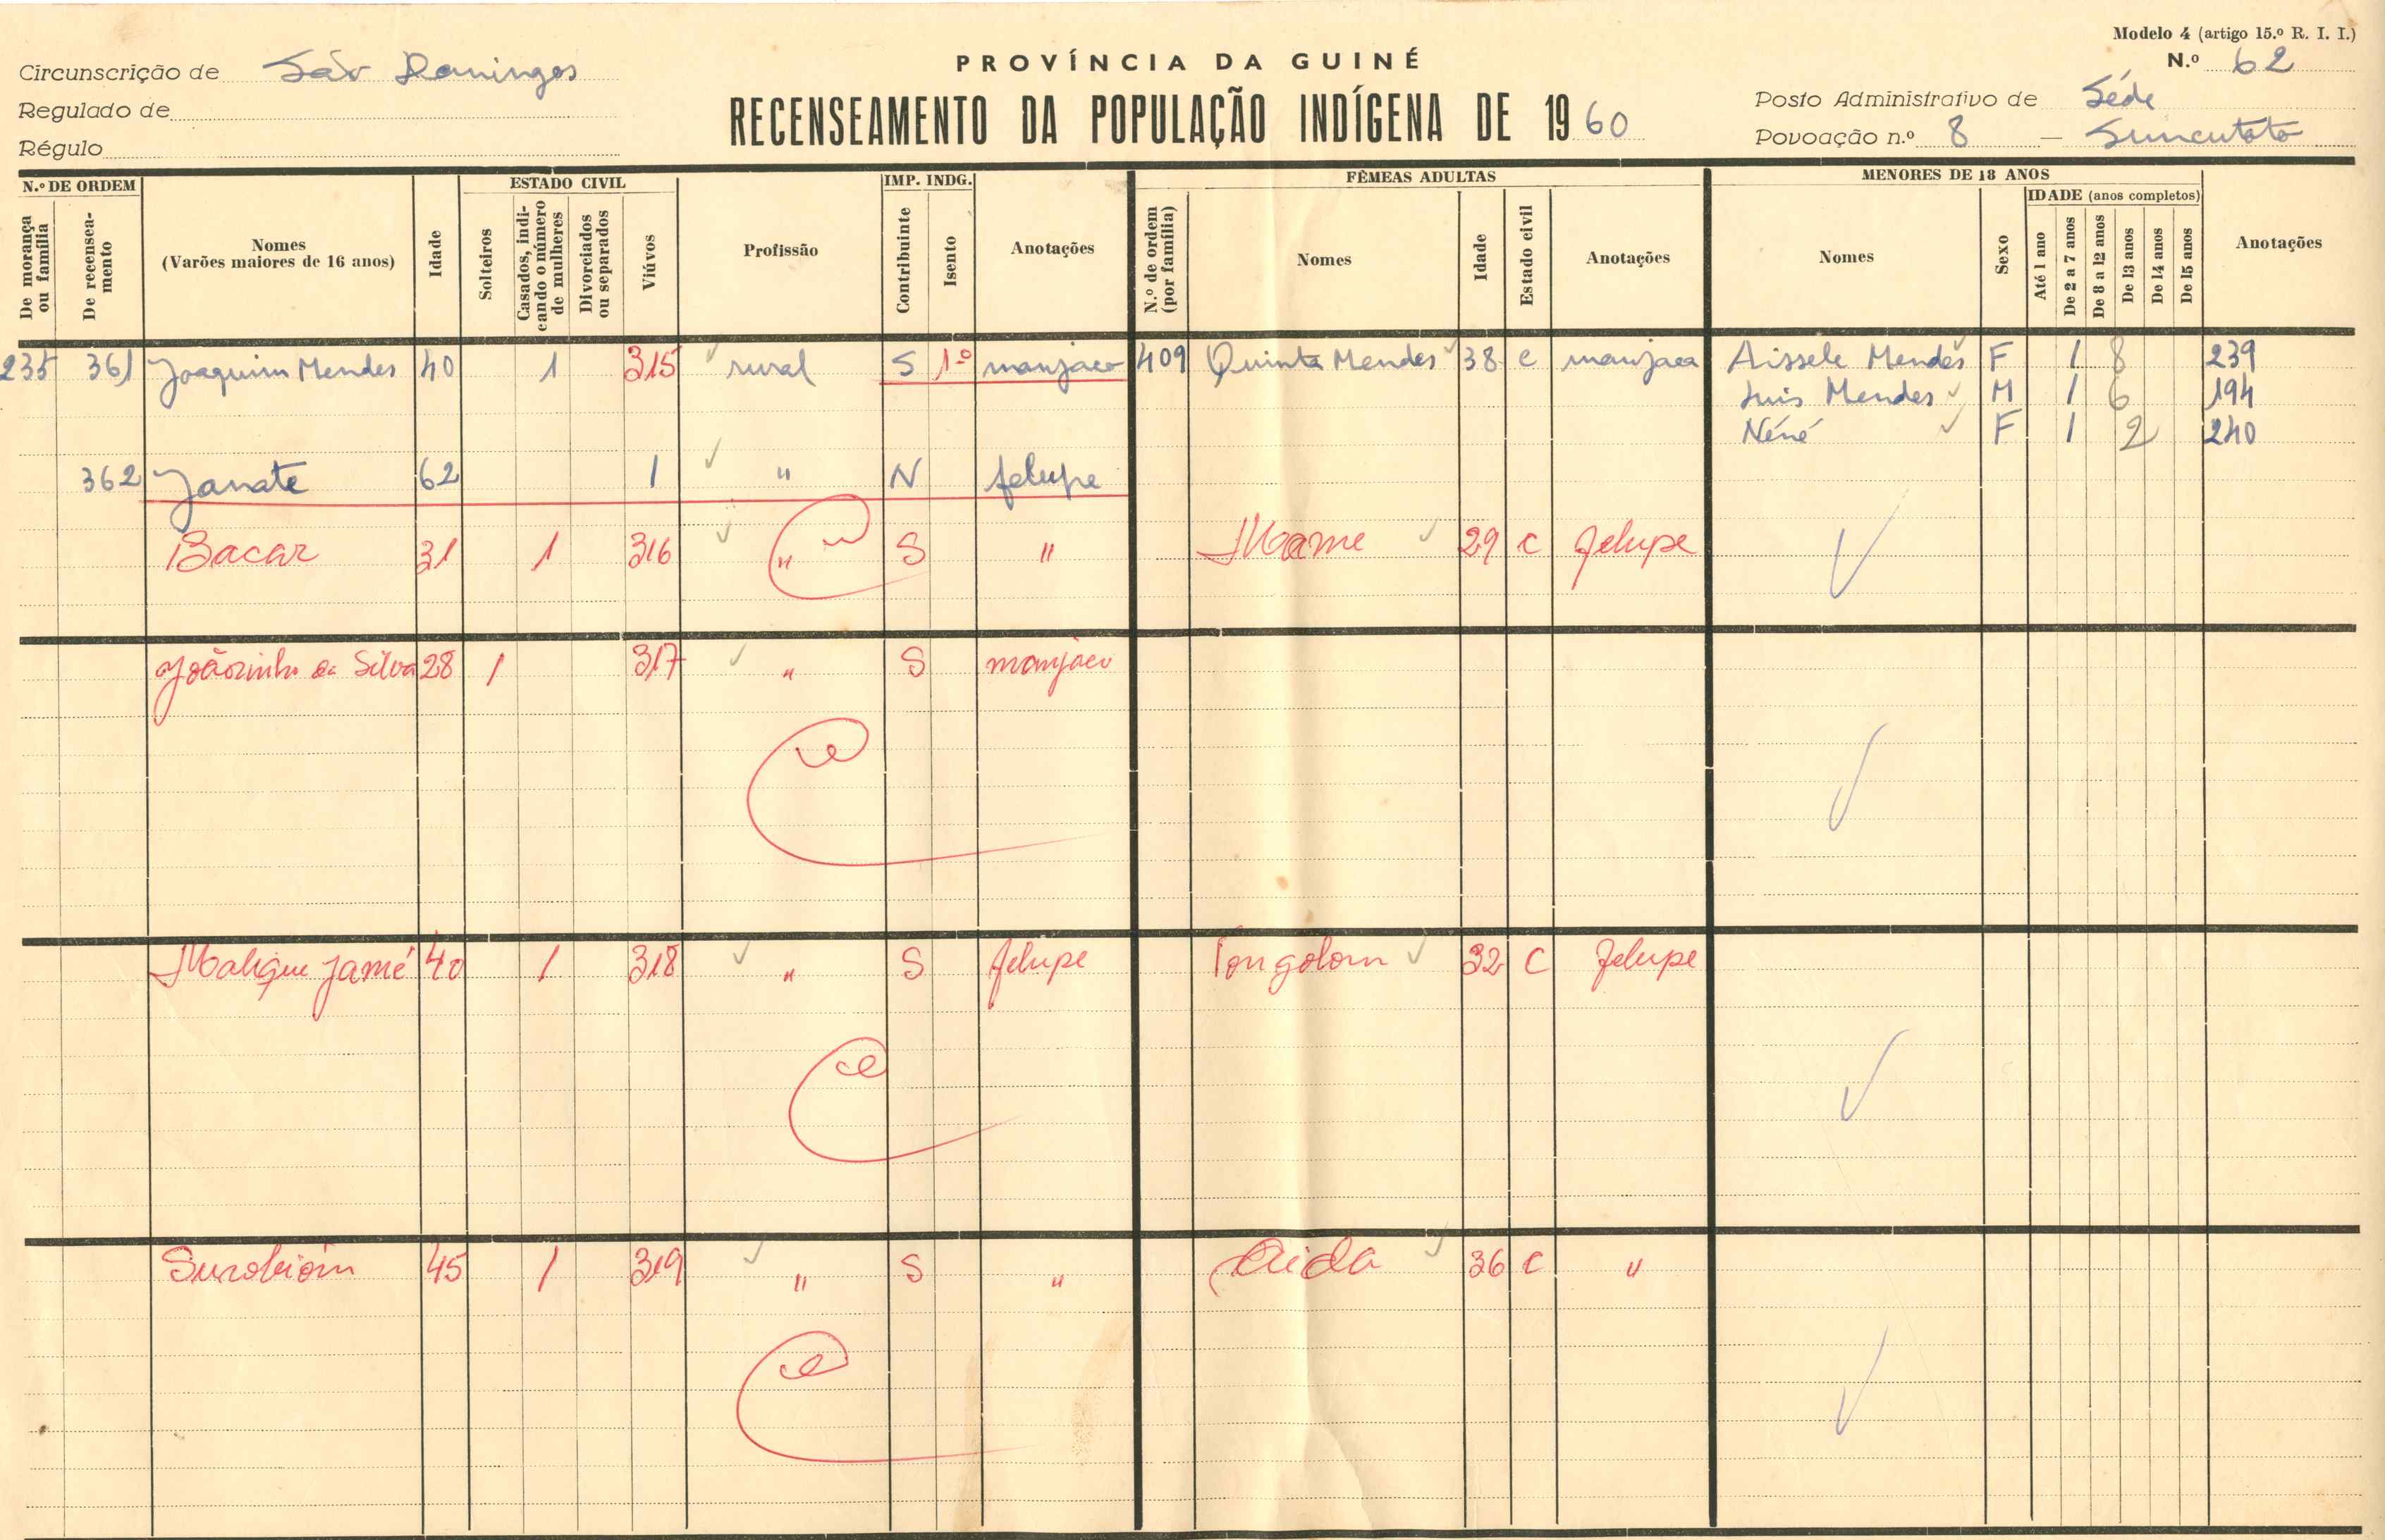 Modelo 4 (artigo 15.º R. I. I.)
Circunscrição de São Domingos
PROVÍNCIA DA GUINÉ
N.º 62
Regulado de
RECENSEAMENTO DA POPULAÇÃO INDÍGENA DE 1960
Posto Administrativo de Séde
Régulo
Povoação n.º 8 — Suncutoto
N.º DE ORDEM
ESTADO CIVIL
IMP. INDG.
FÊMEAS ADULTAS
MENORES DE 18 ANOS
De morança ou família
De recensea-mento
Nomes
(Varões maiores de 16 anos)
Idade
Solteiros
Casados, indi-cando o número de mulheres
Divorciados ou separados
Viúvos
Profissão
Contribuinte
Isento
Anotações
N.º de ordem (por família)
Nomes
Idade
Estado civil
Anotações
Nomes
Sexo
IDADE (anos completos)
Até 1 ano
De 2 a 7 anos
De 8 a 12 anos
De 13 anos
De 14 anos
De 15 anos
Anotações
235 361 Joaquim Mendes 40 1 315 rural S 1º manjaco 409 Quinta Mendes 38 c manjaca Aissele Mendes F 1 8 239
Luis Mendes M 1 6 194
Néné F 1 2 240
362 Janate 62 1 " N felupe
Bacar 31 1 316 " S " Mame 29 c felupe
Joãozinho da Silva 28 1 317 " S manjaco
Malique Jamé 40 1 318 " S felupe Tongolom 32 C felupe
Surobióm 45 1 319 " S " Aida 36 c "